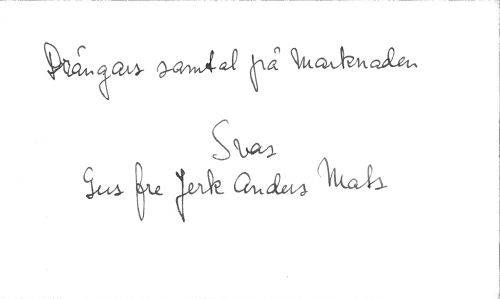 Drängars samtal på Marknaden
Svar
Gus fre Jerk Anders Mats